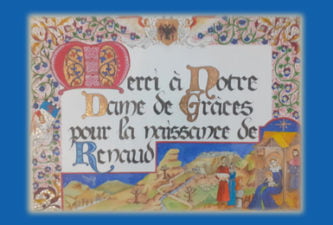 Merci à Notre
Dame de Grâces
pour la naissance de
Renaud